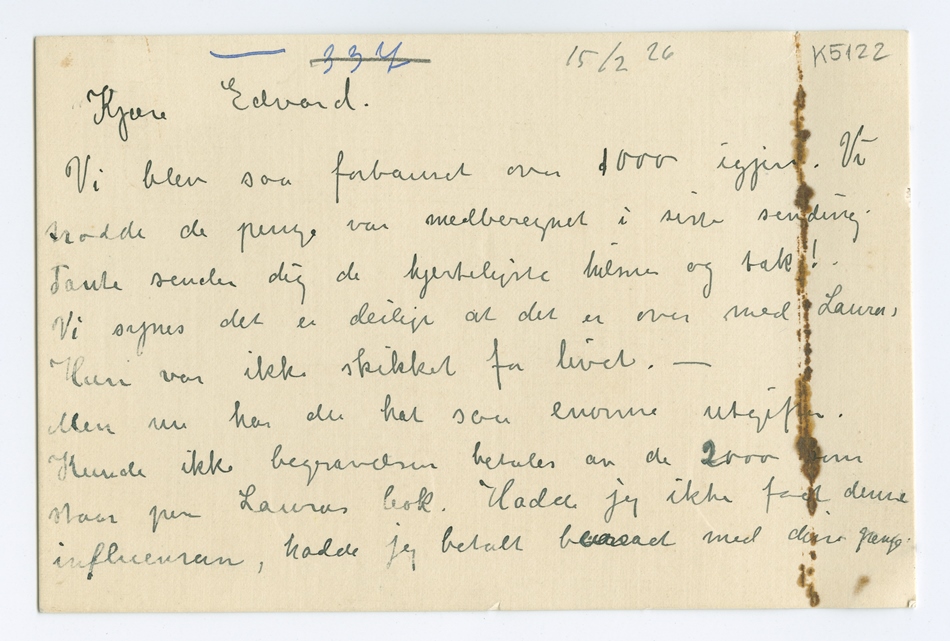 — 337 15/2 26 K5122
Kjære Edvard.
Vi blev saa forbauset over 1000 igjen. Vi
trodde de penge var medberegnet i siste sending.
Tante sender dig de hjerteligste hilsner og tak!
Vi synes det er deilig at det er over med Laura,
Hun var ikke skikket for livet. —
Men nu har du hat saa enorme utgifter.
Kunde ikke begravelsen betales av de 2000 som
staar paa Lauras bok. Hadde jeg ikke faat denne
influensaen, hadde jeg betalt med disse penge.